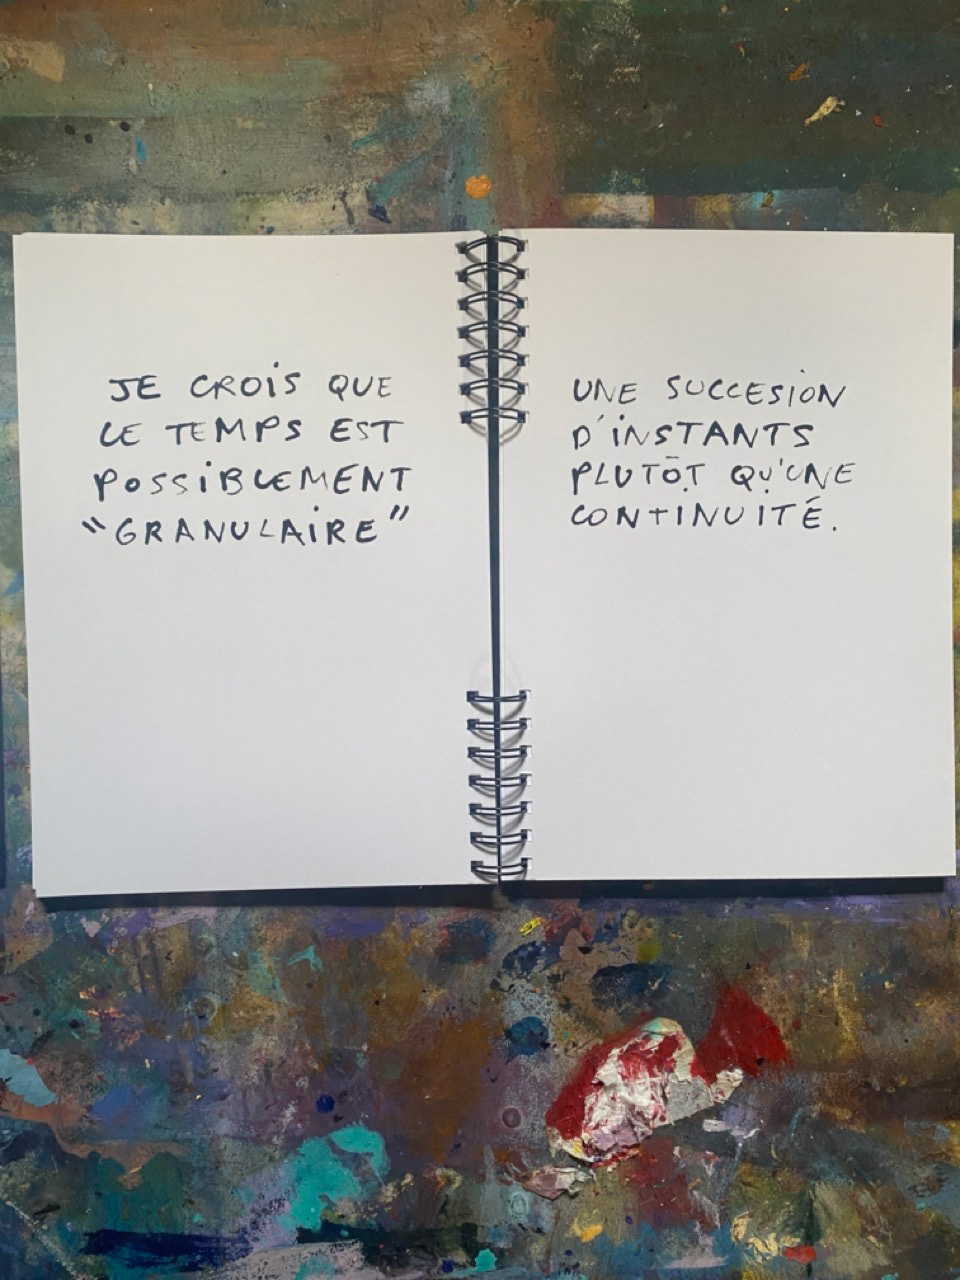 JE CROIS QUE
LE TEMPS EST
POSSIBLEMENT
"GRANULAIRE"
UNE SUCCESION
D'INSTANTS
PLUTÔT QU'UNE
CONTINUITÉ.